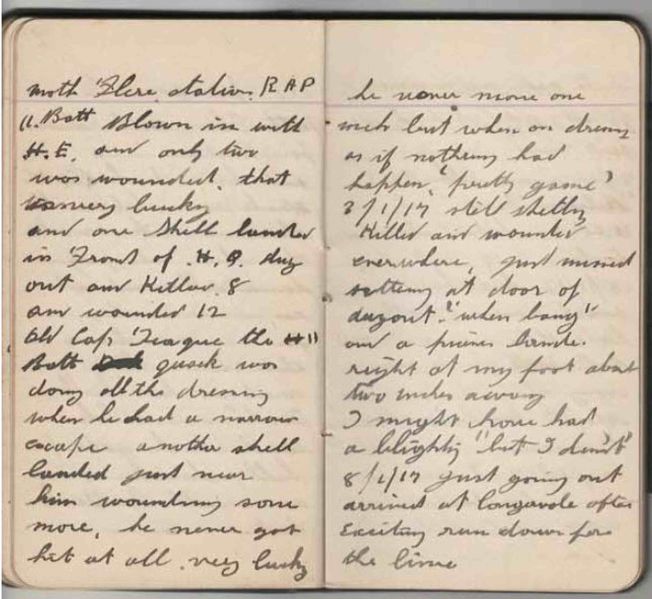 moth Flere station R A P
11. Batt Blown in with
H.E. and only two
was wounded, that
was very lucky
and one shell landed
in Front of H.Q. dug
out and Killed. 8
and wounded 12
Old Cap Teague the 11
Batt quack was
doing all the dressing
when he had a narrow
escape another shell
landed just near
him wounding some
more, he never got
hit at all. very lucky
he never move one
inch but when on dressing
as if nothing had
happen, "pretty game"
3/1/17 still shelling
Killed and wounded
everywhere, just missed
sitting at door of
dugout. "when bang"
and a piece landed
right at my foot about
two inches away
I might have had
a blighty "but I didn't"
8/1/17 Just going out
arrived at longavale after
Exciting run down from
the line